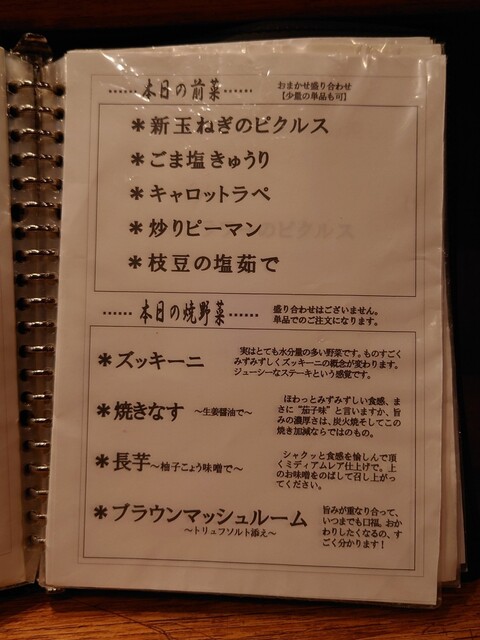 ……本日の前菜……
おまかせ盛り合わせ
【少量の単品も可】
＊新玉ねぎのピクルス
＊ごま塩きゅうり
＊キャロットラペ
＊炒りピーマン
＊枝豆の塩茹で
……本日の焼野菜……
盛り合わせはございません。
単品でのご注文になります。
＊ズッキーニ
実はとても水分量の多い野菜です。ものすごく
みずみずしくズッキーニの概念が変わります。
ジューシーなステーキという感覚です。
＊焼きなす ～生姜醤油で～
ほわっとみずみずしい食感、ま
さに“茄子味”と言いますか、旨
みの濃厚さは、炭火焼そしてこの
焼き加減ならではのもの。
＊長芋～柚子こしょう味噌で～
シャクッと食感を愉しんで頂
くミディアムレア仕上げで。上
のお味噌をのばして召し上がっ
てください。
＊ブラウンマッシュルーム
～トリュフソルト添え～
旨みが重なり合って、
いつまでも口福。おか
わりしたくなるの、す
ごく分かります！